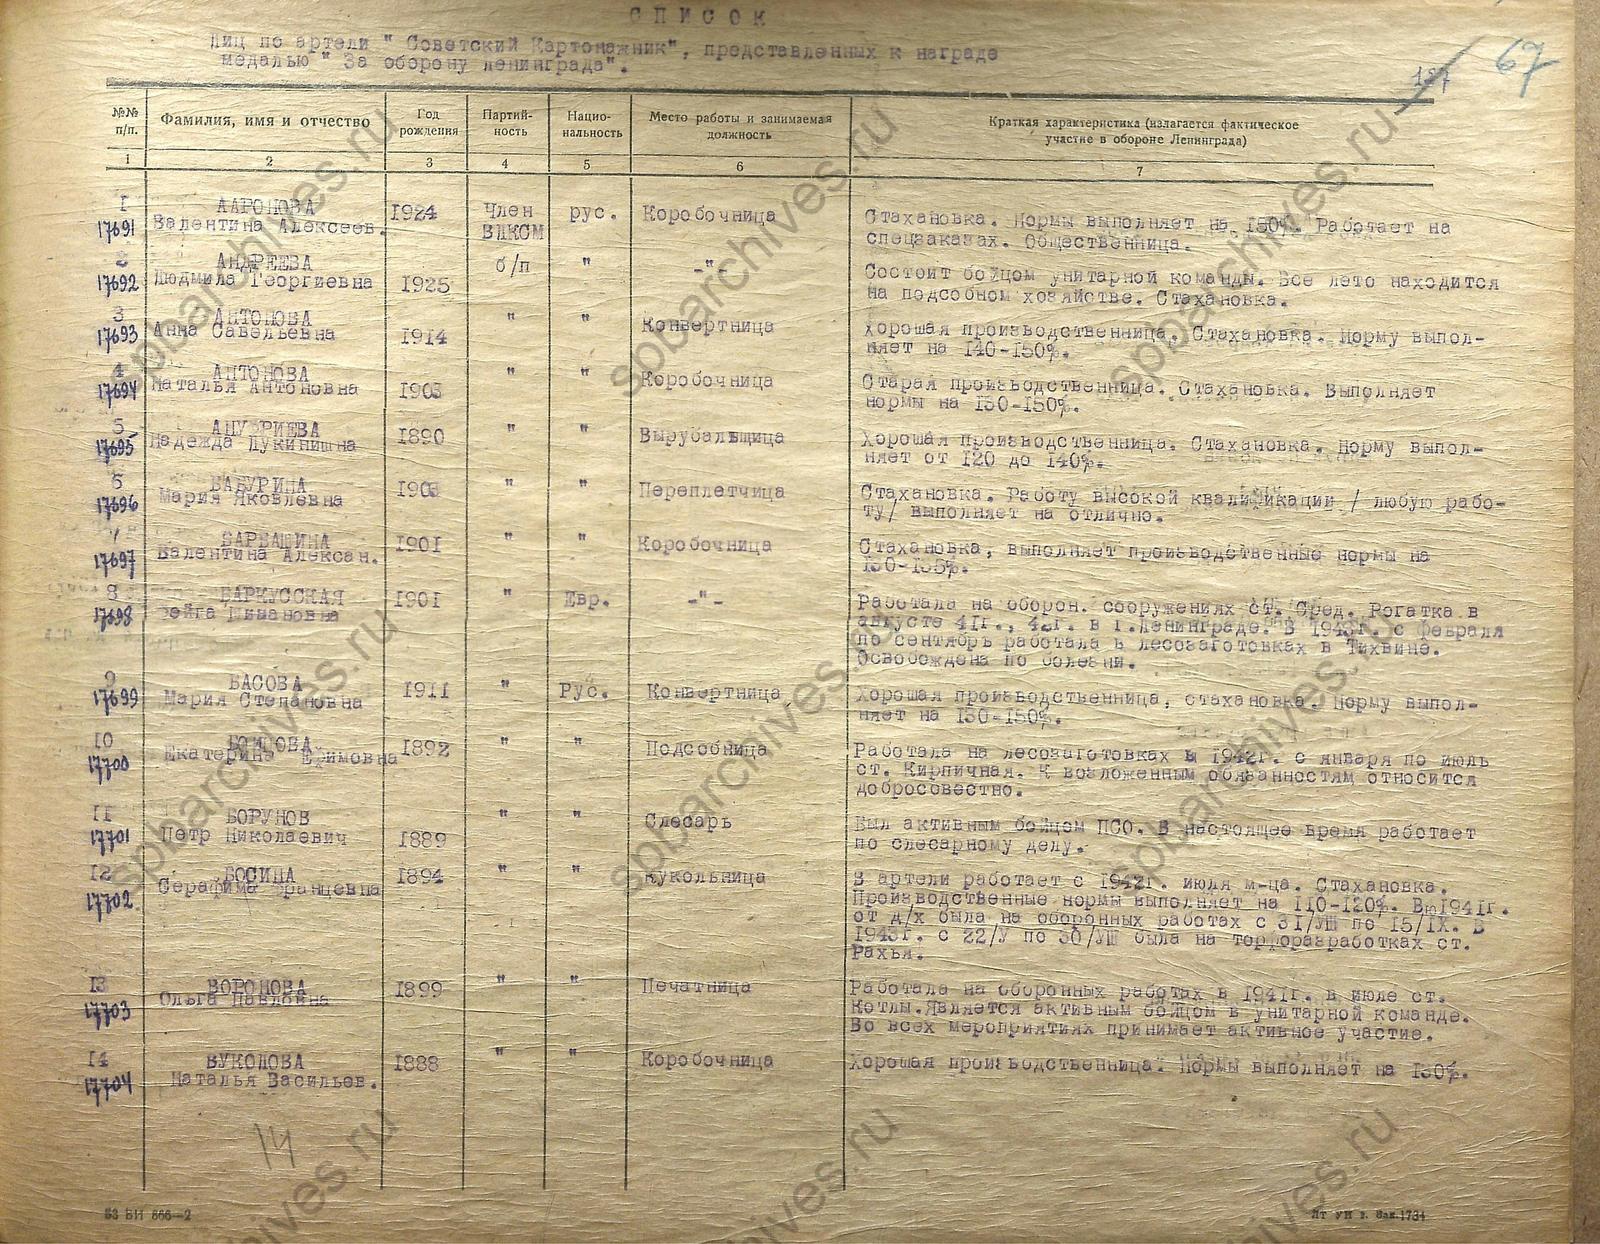 СПИСОК
Лиц по артели " Советский Картонажник", представленных к награде
медалью " За оборону ленинграда".
67
№№ п/п.
Фамилия, имя и отчество
Год рождения
Партий-ность
Нацио-нальность
Место работы и занимаемая должность
Краткая характеристика (излагается фактическое
участие в обороне Ленинграда)
1 2 3 4 5 6 7
1 ААРОНОВА 1924 Член рус. Коробочница Стахановка. Нормы выполняет на 150%. Работает на
17691 Валентина Алексеев. ВЛКСМ спецзаказах. Общественница.
2 АНДРЕЕВА б/п " -"- Состоит бойцом унитарной команды. Все лето находится
17692 Людмила Георгиевна 1925 на подсобном хозяйстве. Стахановка.
3 АНТОНОВА " " Конвертница Хорошая производственница, Стахановка. Норму выпол-
17693 Анна Савельевна 1914 няет на 140-150%.
4 АНТОНОВА " " Коробочница Старая производственница. Стахановка. Выполняет
17694 Наталья Антоновна 1903 нормы на 130-150%.
5 1890 " " Вырубальщица Хорошая производственница. Стахановка. Норму выпол-
17695 Надежда Лукинишна няет от 120 до 140%.
6 БАБУРИНА " " Переплетчица Стахановка. Работу высокой квалификации / любую рабо-
17696 Мария Яковлевна ту/ выполняет на отлично.
7 БАРБАШИНА 1901 " " Коробочница Стахановка, выполняет производственные нормы на
17697 Валентина Алексан. 130-135%.
8 БАРКУССКАЯ 1901 " Евр. -"- Работала на оборон. сооружениях ст. Сред. Рогатка в
17698 августе 41г., 42г. в г.Ленинграде. В 1943г. с февраля
по сентябрь работала в лесозаготовках в Тихвине.
Освобождена по болезни.
9 БАСОВА 1911 " Рус. Конвертница Хорошая производственница, стахановка. Норму выпол-
17699 Мария Степановна няет на 130-150%.
10 1892 " " Подсобница Работала на лесозаготовках в 1942г. с января по июль
17700 Екатерина Ефимовна ст. Кирпичная. К возложенным обязанностям относится
добросовестно.
11 БОРУНОВ " " Слесарь Был активным бойцом ПСО. В настоящее время работает
17701 Петр Николаевич 1889 по слесарному делу.
12 БОСИНА 1894 " " Кукольница В артели работает с 1942г. июля м-ца. Стахановка.
17702 Серафима Францевна Производственные нормы выполняет на 110-120%. В 1941г.
от д/х была на оборонных работах с 31/УШ по 15/IX. В
1943г. с 22/У по 30/УШ была на торфоразработках ст.
Рахья.
13 ВОРОНОВА 1899 " " Печатница Работала на оборонных работах в 1941г. в июле ст.
17703 Ольга Павловна Котлы.Является активным бойцом в унитарной команде.
Во всех мероприятиях принимает активное участие.
14 ВУКОЛОВА 1888 " " Коробочница Хорошая производственница. Нормы выполняет на 130%.
17704 Наталья Васильев.
14
53 ВИ 866—2
spbarchives.ru